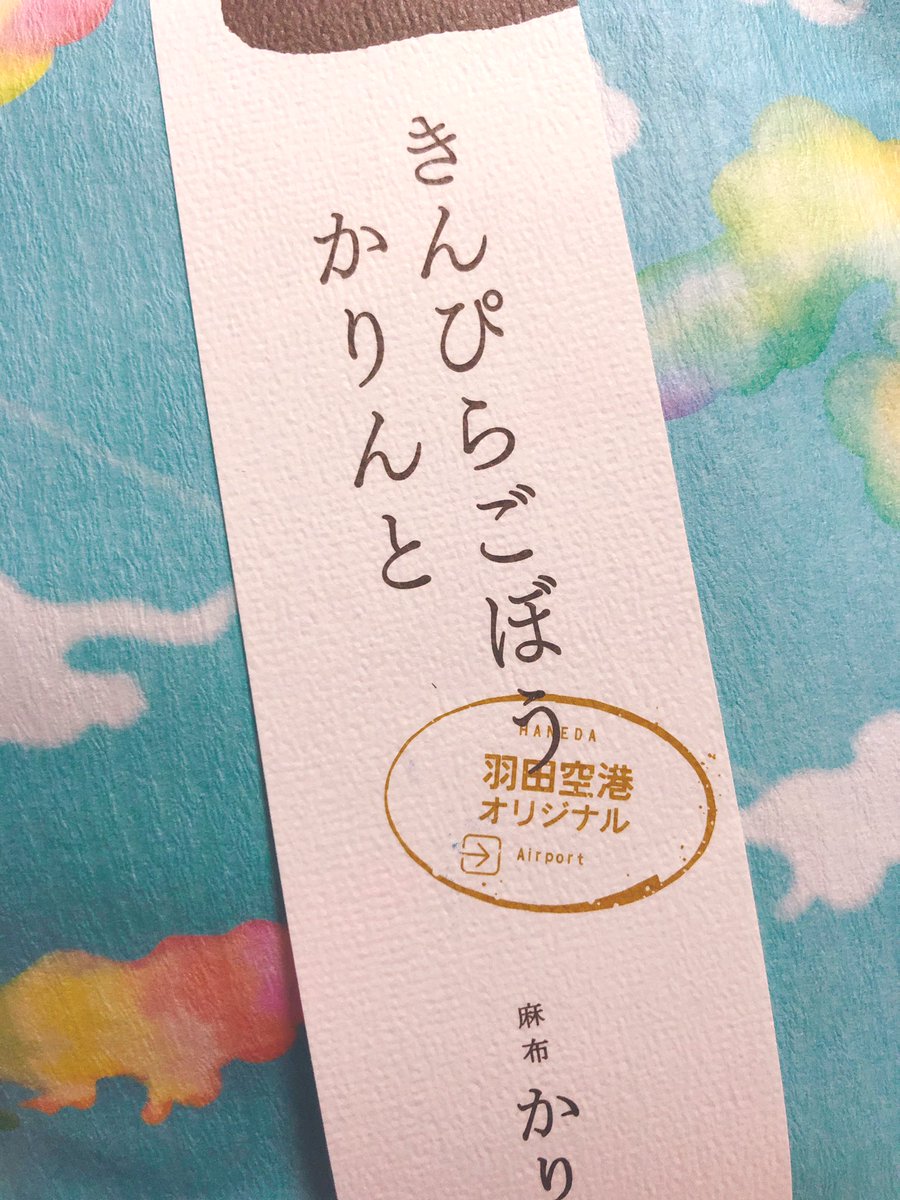 きんぴらごぼう
かりんと
HANEDA
羽田空港
オリジナル
Airport
麻布
かり